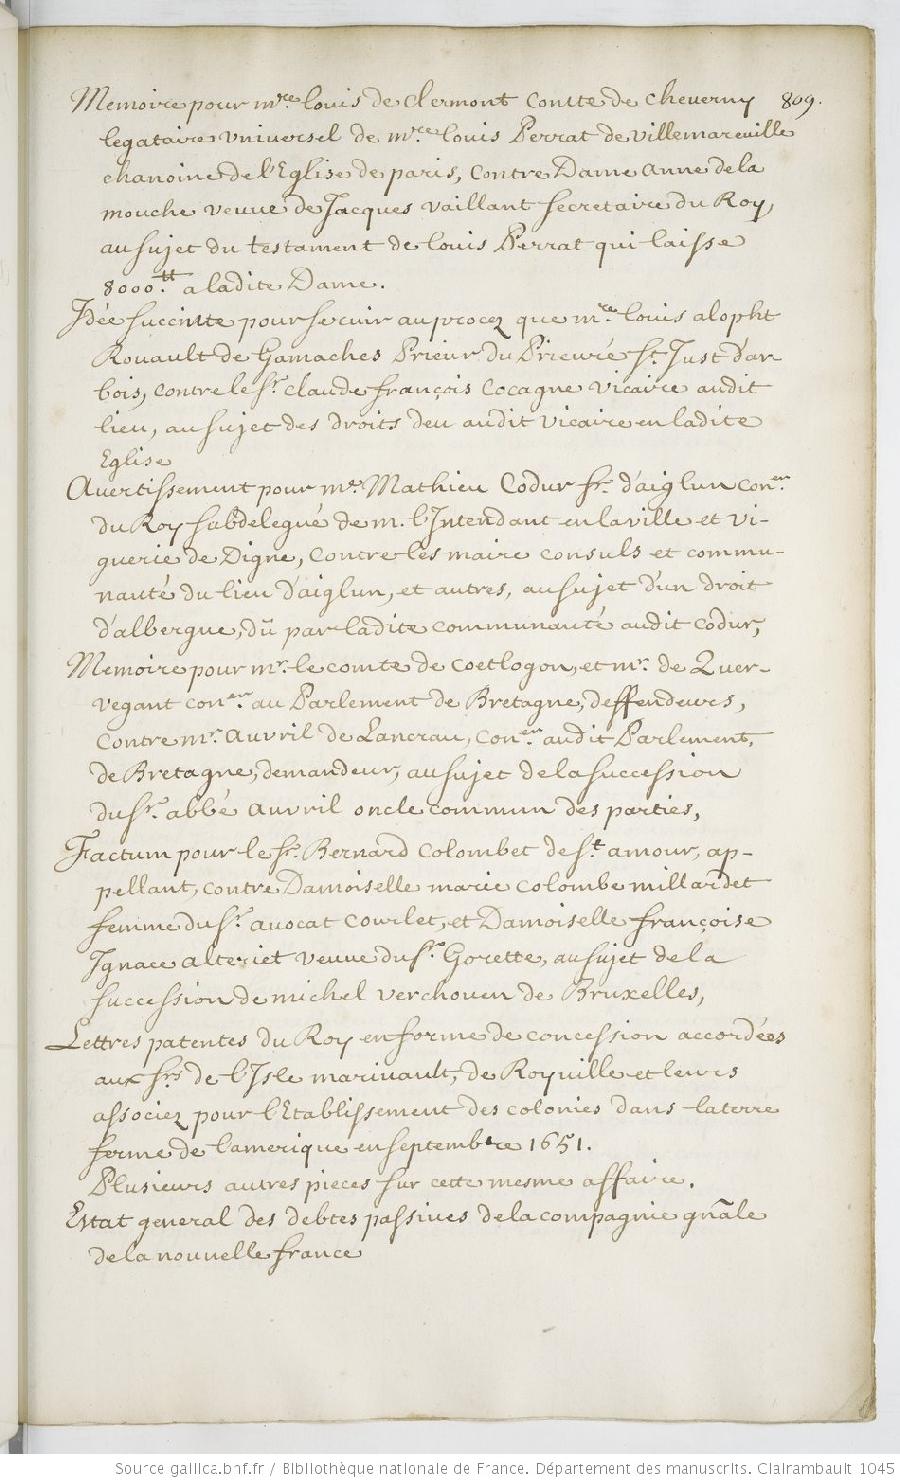 809.
Memoire pour mre louis de Clermont Comte de Cheverny
legataire Vniversel de mre louis Perrat de villemareuille
chanoine de l'Eglise de paris, Contre Dame Anne de la
mouche veuve de Jacques vaillant secretaire du Roy,
au sujet du testament de louis Perrat qui laisse
8000.tt a ladite Dame.
Idée succinte pour servir au procez que mre louis alopht
Rouault de Gamaches Prieur du Prieuré St. Just d'ar-
bois, contre le Sr. claude françois Cocagne vicaire audit
lieu, au sujet des droits deu audit vicaire en ladite
Eglise
Avertissement pour me. Mathieu Codur Sr. d'aiglun conen.
du Roy subdelegué de m. l'Intendant en la ville et vi-
guerie de Digne, contre les maire consuls et commu-
nauté du lieu d'aiglun, et autres, au sujet d'un droit
d'albergue, dû par ladite communauté audit codur,
Memoire pour mr. le comte de coetlogon, et mr. de Quer-
vegant conen. au Parlement de Bretagne, deffendeurs,
contre mr. auvril de Lancrau, conen. audit Parlement,
de Bretagne, demandeur, au sujet de la succession
du Sr. abbé auvril oncle commun des parties,
Factum pour le Sr. Bernard Colombet de St. amour, ap-
pellant, contre Damoiselle marie colombe millardet
femme du Sr. avocat Courlet, et Damoiselle françoise
Ignace alteriet veuve du Sr. Gorette, au sujet de la
succession de michel verchouen de Bruxelles,
Lettres patentes du Roy en forme de concession accordées
aux Srs de l'Isle marivault, de Royville et leurs
associez pour l'Etablissement des colonies dans la terre
ferme de l'amerique en septembre 1651.
Plusieurs autres pieces sur cette mesme affaire.
Estat general des debtes passives de la compagnie gnãle
de la nouvelle france
Source gallica.bnf.fr / Bibliothèque nationale de France. Département des manuscrits. Clairambault 1045